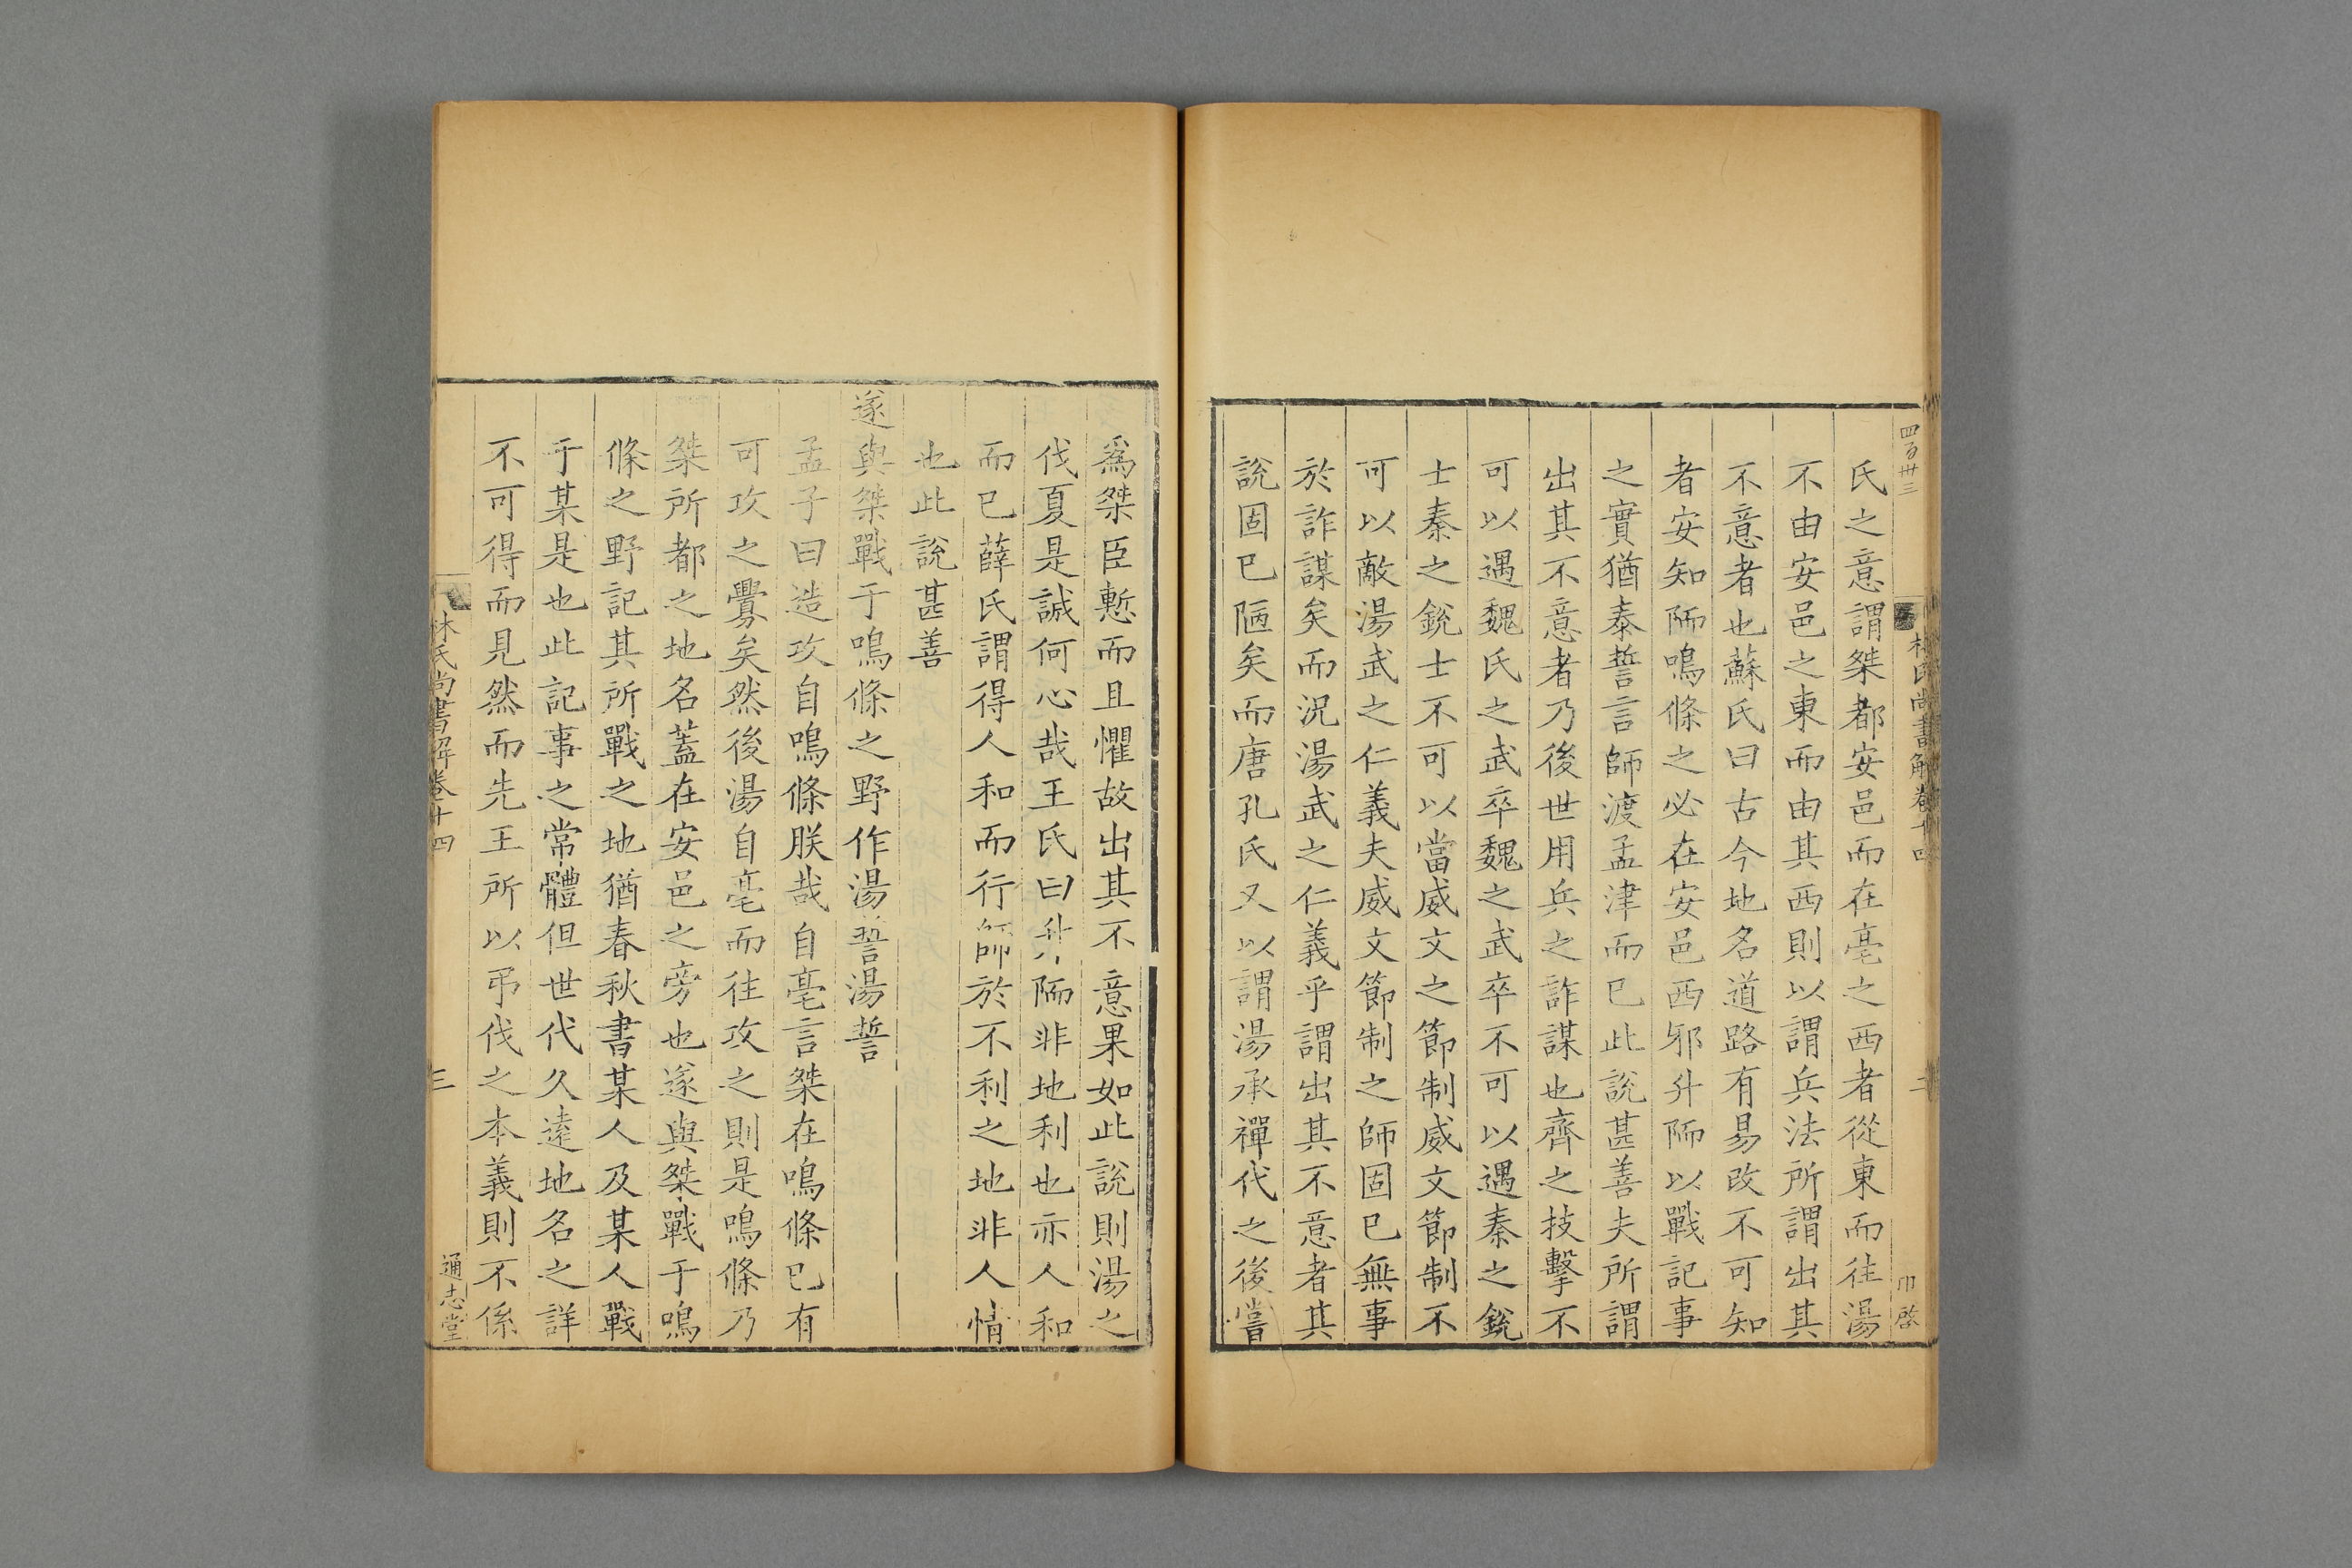 四百卅三
林氏尚書解卷十四
二
氏之意謂桀都安邑而在亳之西者從東而往湯
不由安邑之東而由其西則以謂兵法所謂出其
不意者也蘇氏曰古今地名道路有易改不可知
者安知陑鳴條之必在安邑西邪升陑以戰記事
之實猶泰誓言師渡孟津而已此說甚善夫所謂
出其不意者乃後世用兵之詐謀也齊之技擊不
可以遇魏氏之武卒魏之武卒不可以遇秦之銳
士秦之銳士不可以當威文之節制威文節制不
可以敵湯武之仁義夫威文節制之師固已無事
於詐謀矣而況湯武之仁義乎謂出其不意者其
說固已陋矣而唐孔氏又以謂湯承禪代之後嘗
爲桀臣慙而且懼故出其不意果如此說則湯之
伐夏是誠何心哉王氏曰升陑非地利也亦人和
而已薛氏謂得人和而行師於不利之地非人情
也此說甚善
遂與桀戰于鳴條之野作湯誓湯誓
孟子曰造攻自鳴條朕哉自亳言桀在鳴條已有
可攻之釁矣然後湯自亳而往攻之則是鳴條乃
桀所都之地名蓋在安邑之旁也遂與桀戰于鳴
條之野記其所戰之地猶春秋書某人及某人戰
于某是也此記事之常體但世代久遠地名之詳
不可得而見然而先王所以弔伐之本義則不係
林氏尚書解卷十四
三
通志堂